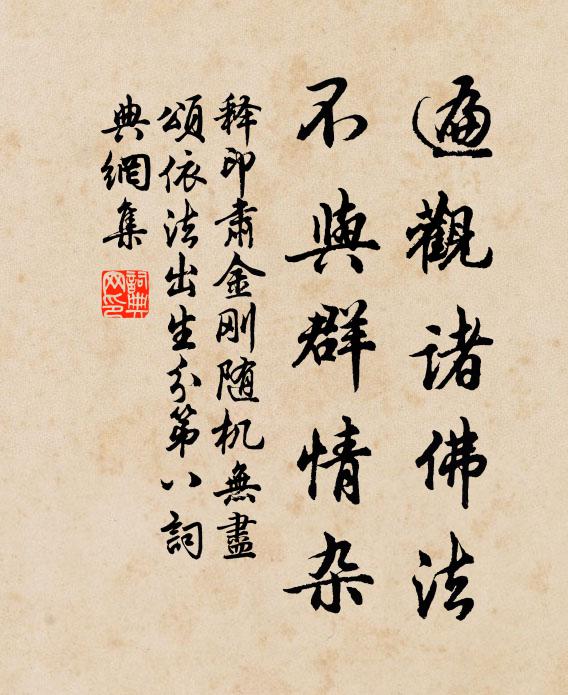 遍觀諸佛法
不與群情杂
释印肃金刚随机無盡
頌依法出生分第八詞
典網集
詞典
网印